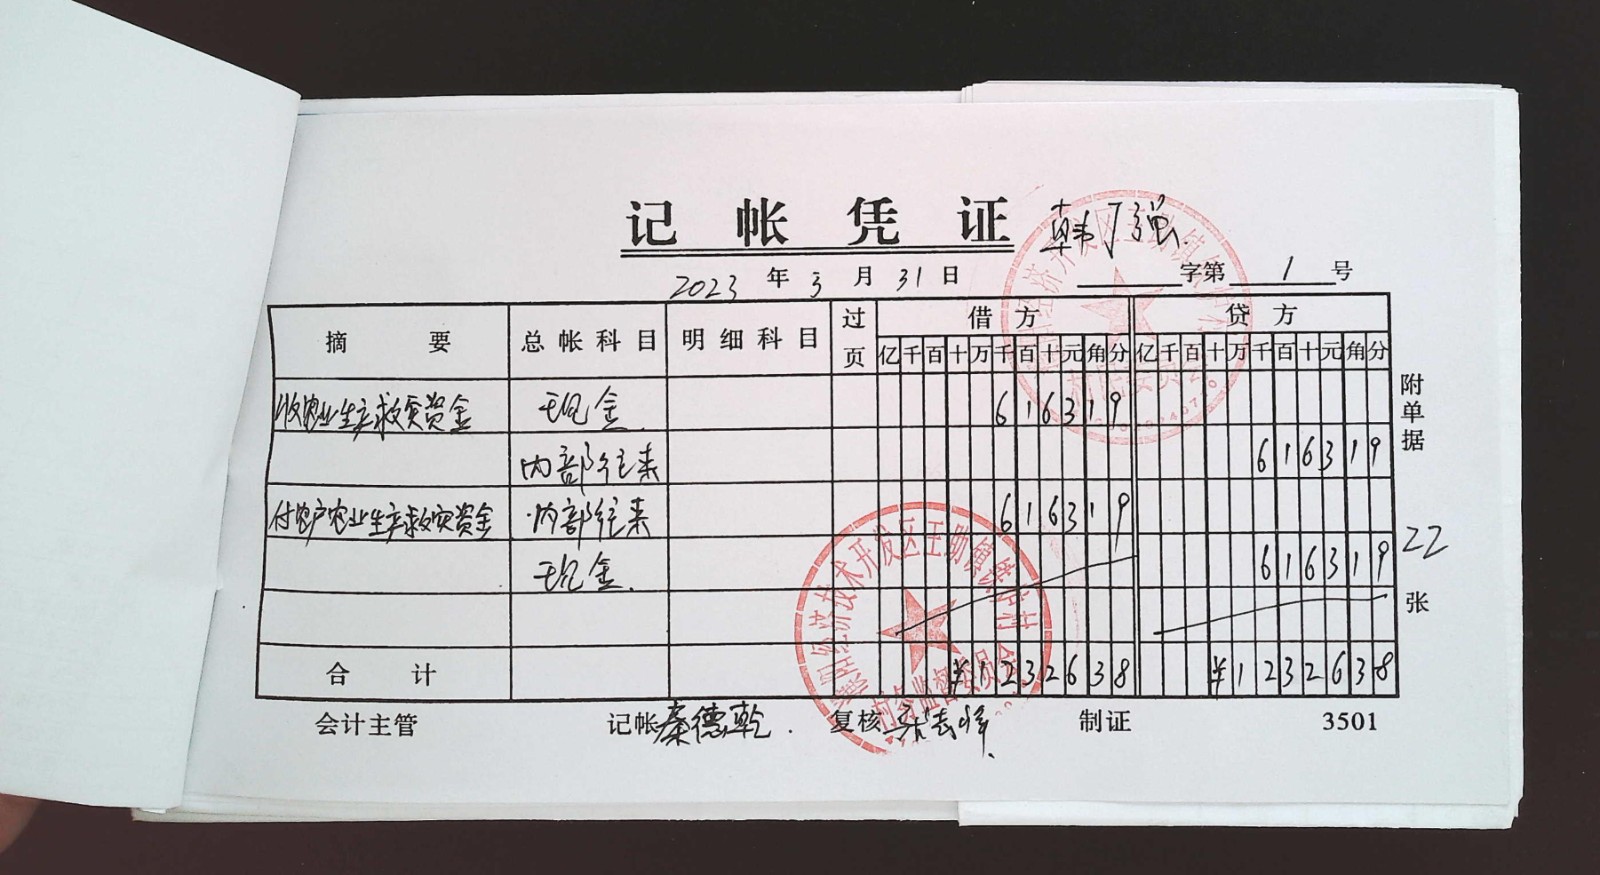 记帐凭证
2023年3月31日
字第1号
摘要 总帐科目 明细科目 过页 借方 贷方
亿千百十万千百十元角分 亿千百十万千百十元角分
收农业生产救灾资金 现金 616319
内部往来 616319
付农户农业生产救灾资金 内部往来 616319
现金 616319
合计 ¥1232638 ¥1232638
附单据 22 张
会计主管 记帐 秦德乾 复核 制证 3501
经济技术开发区王助镇
村务监督委员会